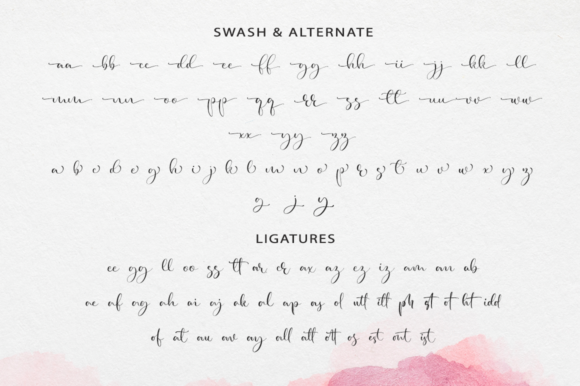 SWASH & ALTERNATE
aa bb cc dd ee ff gg hh ii jj kk ll
mm nn oo pp qq rr ss tt uu vv ww
xx yy zz
a b c d e g h i j k l m n o p r s t u v w x y z
g j y
LIGATURES
ee gg ll oo ss tt ar er ax az ez iz am an ab
ae af ag ah ai aj ak al ap as el ntt itt ph st ot ht idd
of at au aw ay all att ott os est ont ist